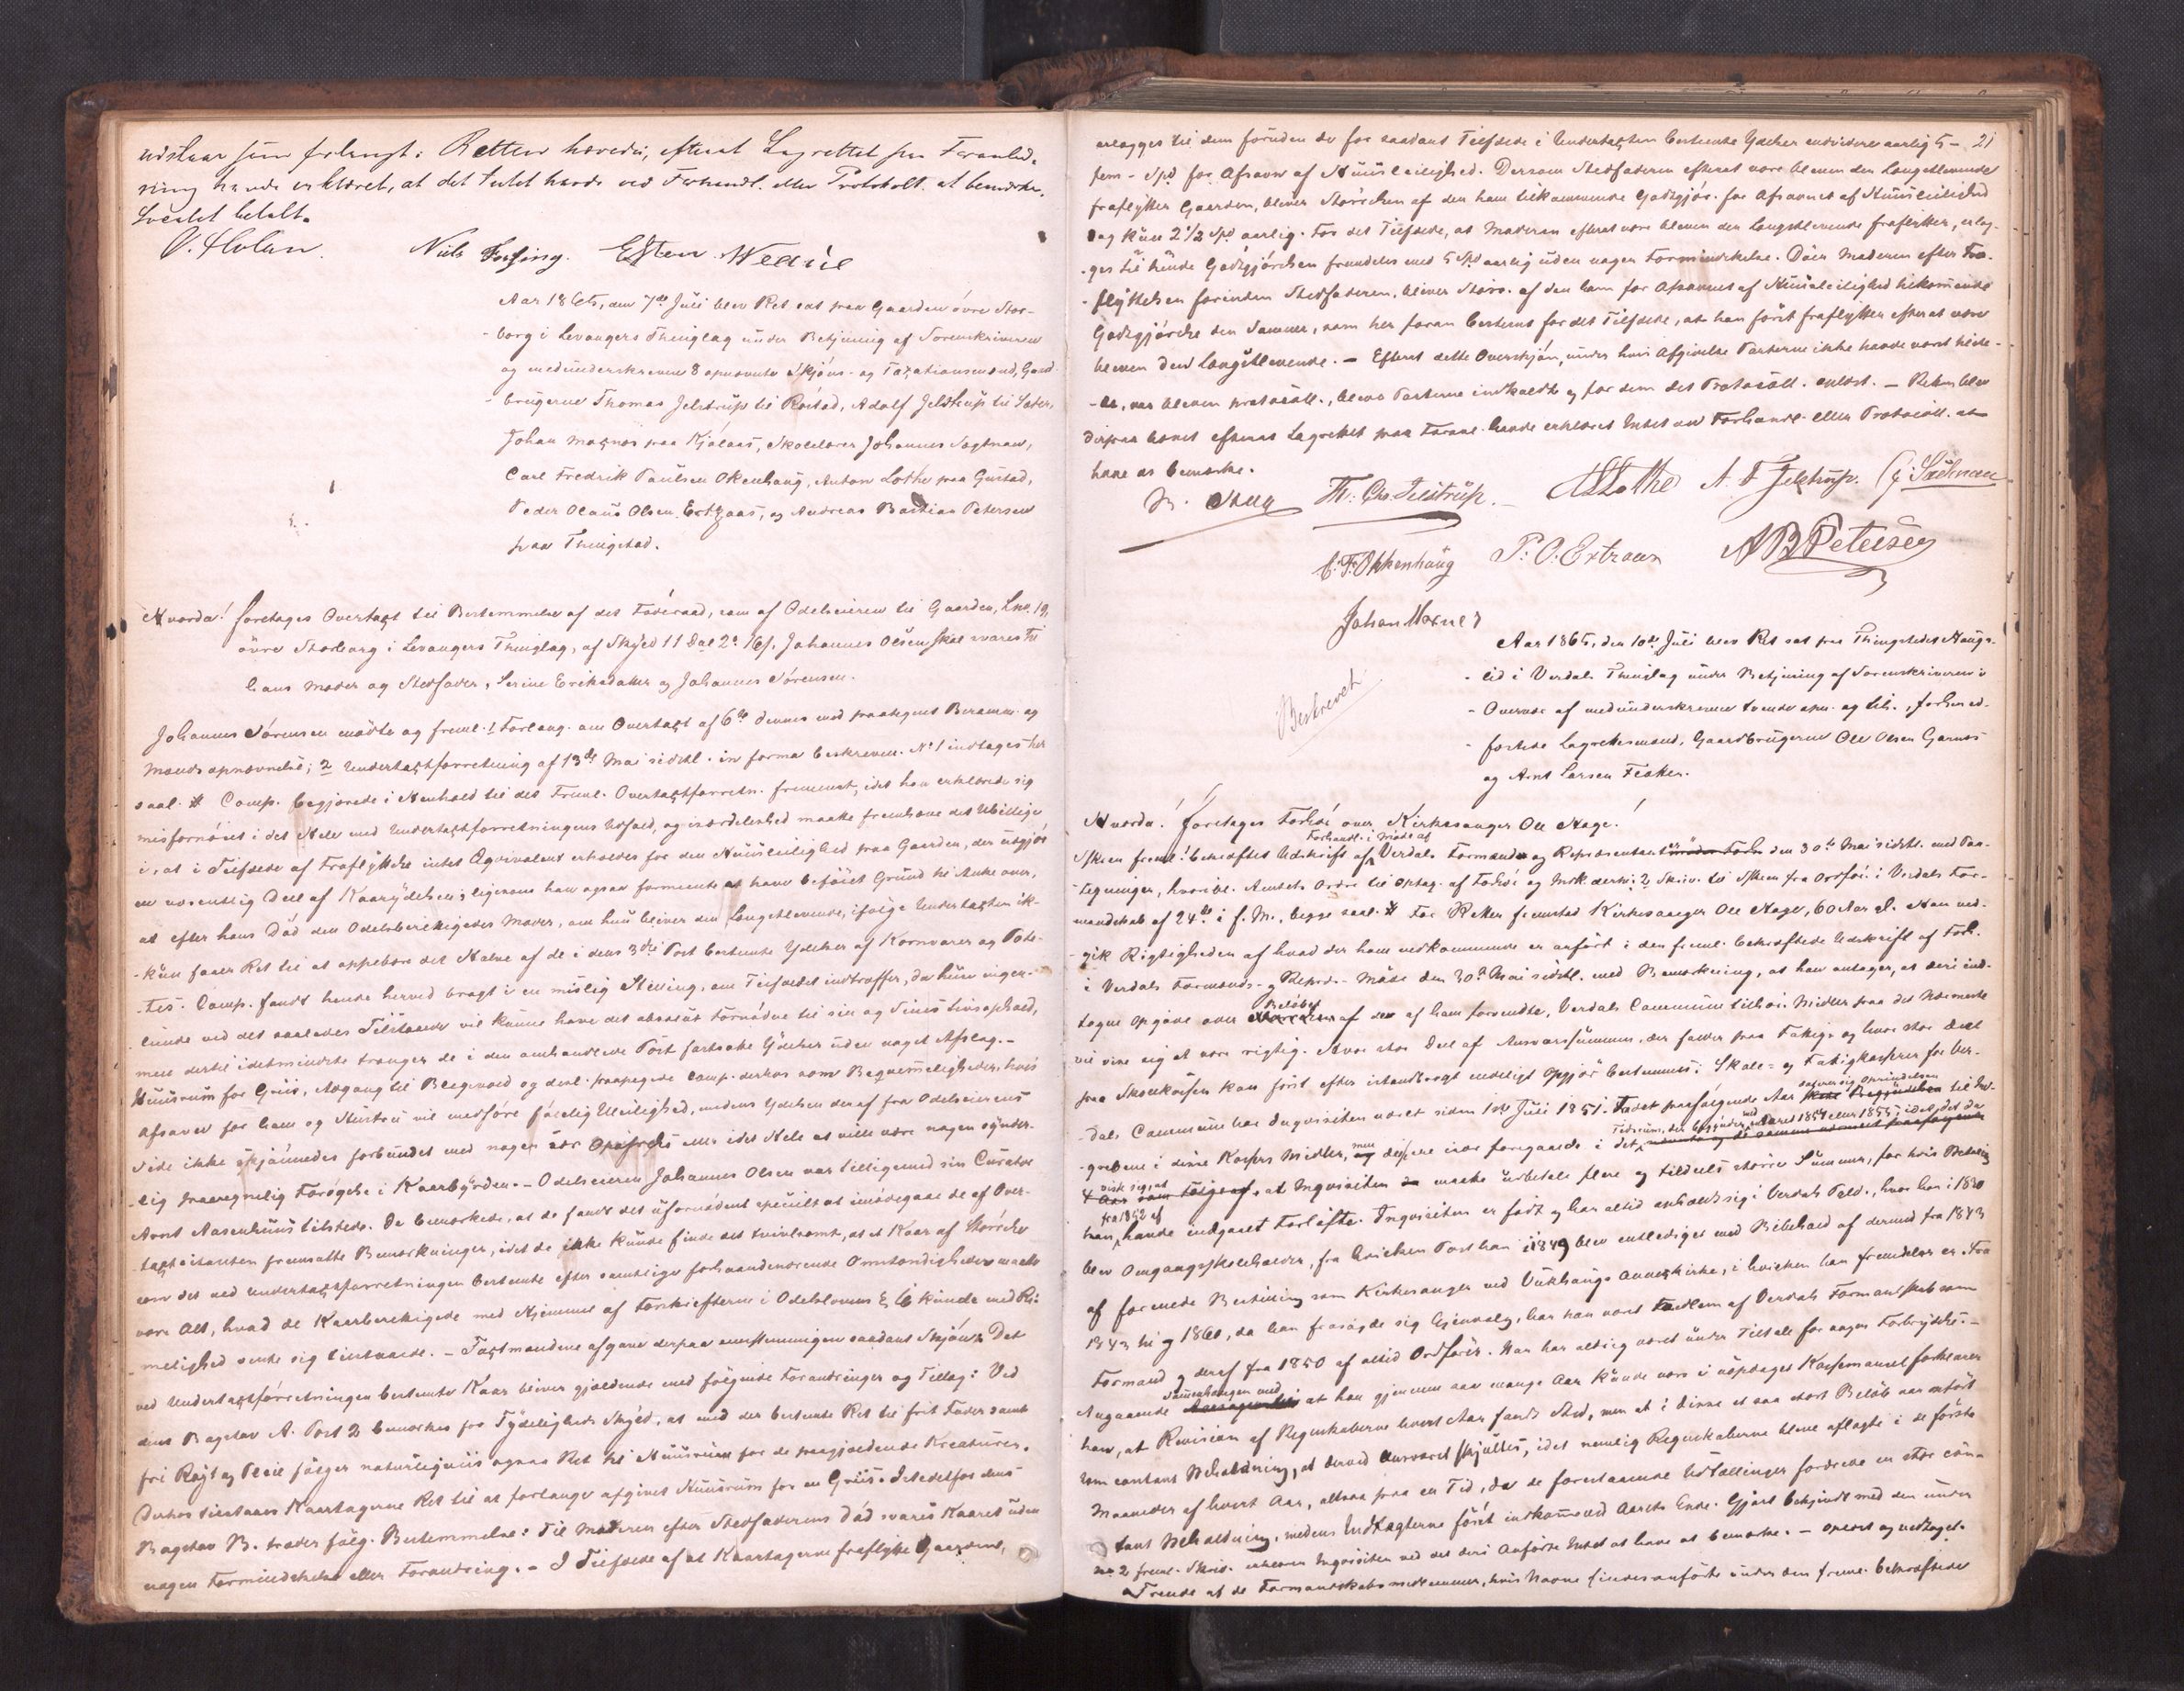 udstaar som forlangt. Retten hævedes, efterat Lagrettet paa Foranled-
ning havde erklæret, at det Intet havde ved Forhandl. eller Protokoll. at bemærke.
betalt.
O. Holan. Niels Forsing. Esten Wedūl
Aar 1865, den 7de Juli blev Ret sat paa Gaarden övre Stor-
borg i Levangers Thinglag under Betjening af Sorenskriveren
og medunderskrevne 8 opnævnte Skjöns- og Taxationsmænd, Gaard-
brugerne Thomas Jelstrup til Röstad, Adolf Jelstrup til
Johan Maxnæs paa Skolelærer Johannes
Carl Fredrik Paulsen Okkenhaug, Anton Lothe paa Gustad,
Peder Olaus Olsen Ertzaas, og Andreas Bastian Petersen
paa Thingstad.
Hvorda! foretages Overtaxt til Bestemmelse af det Föderaad, som af Odelseieren til Gaarden, Lno. 19,
övre Storborg i Levangers Thinglag, af Skyld 11 Dal. 2 16 s. Johannes Olsen skal svares til
hans Moder og Stedfader, Serine Eriksdatter og Johannes Sörensen.
Johannes Sörensen mödte og freml. 1 Forlang. om Overtaxt af 6te dennes med paategnet Beramm. og
Mandsopnævnelse; 2 Undertaxtforretning af 13de Mai sidstl. in forma beskreven. No 1 indtages her
saal. # Comp. begjærede i Henhold til det Freml. Overtaxtforretn. fremmet, idet han erklærede sig
misfornöiet i det Hele med Undertaxtforretningens Udfald, og isærdeleshed maatte fremhæve det Ubillige
i, at i Tilfælde af Fraflyttelse intet Æqvivalent erholdes for den Huusleilighed paa Gaarden, der udgjör
en væsentlig Deel af Kaarydelsen; ligesom han ogsaa formente at have beföiet Grund til Anke over,
at efter hans Död den Odelsberettigedes Moder, om hun bliver den Længstlevende, ifölge Undertaxten ik-
kun faaer Ret til at oppebære det Halve af de i dens 3die Post bestemte Ydelser af Kornvarer og Pote-
tes. Comp. fandt hende herved bragt i en mislig Stilling, om Tilfældet indtraffer, da hun ingen-
lunde ved det saaledes Tilstaaede vil kunne have det absolut Fornödne til sin og Livsophold,
men dertil idetmindste trænger de i den omhandlede Post fastsatte Ydelser uden noget Afslag. -
Huusrum for Griis, Adgang til Blegevold og desl. paapegede Comp. derhos som Beqvemmeligheder, hvis
Afsavn for ham og Hustru vil medföre fölelig Uleilighed, medens Ydelsen deraf fra Odelseierens
Side ikke skjönnedes forbundet med nogen stor Opofrelse eller idet Hele at ville være nogen synder-
lig Forögelse i Kaarbyrden. - Odelseieren Johannes Olsen var tilligemed sin Curator
Arnt Aasenhuus tilstede. De bemærkede, at de fandt det ufornödent specielt at imödegaae de af Over-
taxtcitanten fremsatte Bemærkninger, idet de ikke kunde finde det tvivlsomt, at et Kaar af Större
om det ved Undertaxtforretningen bestemte efter samtlige forhaandenværende Omstændigheder maatte
være Alt, hvad de Kaarberettigede med Hjemmel af Forskrifterne i Odelslovens § 16 kunde med Ri-
melighed vente sig tilstaaede. - Taxtmændene afgave derpaa eenstemmigen saadant Skjön: Det
ved Undertaxtforretningen bestemte Kaar bliver gjældende med fölgende Forandringer og Tillæg: Ved
dens Bogstav A. Post 2 bemærkes for Tydeligheds Skyld, at med der bestemte Ret til frit Foder samt
fri Rögt og Pleie fölger naturligviis ogsaa Ret til Huusrum for de paagjældende Kreaturer.
Derhos tilstaaes Kaartagerne Ret til at forlange afgivet Huusrum for en Griis. Istedetfor dens
Bogstav B. træder fölg. Bestemmelse: Til Moderen efter Stedfaderens Död svares Kaaret uden
nogen Formindskelse eller Forandring. - I Tilfælde af at Kaartagerne fraflytte Gaarden,
21
erlægges til dem foruden de for saadant Tilfælde i Undertaxten bestemte Ydelser endvidere aarlig 5 -
fem - Spd for Afsavn af Huusleilighed. Dersom Stedfaderen efterat være bleven den Længstlevende
fraflytter Gaarden, bliver Störrelsen af den ham tilkommende Godtgjör. for Afsavnet af Huusleilighed
og kun 2 1/2 Spd aarlig. For det Tilfælde, at Moderen efterat være bleven den Længstlevende fraflytter, erlæg-
ges til hende Godtgjörelsen fremdeles med 5 Spd aarlig uden nogen Formindskelse. Döer Moderen efter Fra-
flyttelsen forinden Stedfaderen, bliver Störr. af den ham for Afsavnet af Huusleilighed tilkommende
Godtgjörelse den Samme, som her foran bestemt for det Tilfælde, at han först fraflytter efterat være
bleven den Længstlevende. - Efterat dette Overskjön, under hvis Afgivelse Parterne ikke havde været tilste-
de, var bleven protocoll., bleve Parterne indkaldte og for dem det Protocoll. oplæst. - Retten blev
derpaa hævet efterat Lagrettet paa Foranl. havde erklæret Intet ved Forhandl. eller Protocoll. at
have at bemærke.
Th. Chr. Jelstrup. A Lothe A. F. Jelstrup.
C. F. Okkenhaug P. O. Ertzaas A B Petersen
Johan Maxnes
Beskrevet
Aar 1865, den 10de Juli blev Ret sat paa Thingstedet Haug-
lid i Verdal. Thinglag under Betjening af Sorenskriveren i
Overvær af medunderskrevne tvende opn. og til. forhen ed-
fæstede Lagrettesmænd, Gaardbrugerne Ole Olsen Garnæs
og Arnt Larsen Fisker.
Hvorda! foretages Forhör over Kirkesanger Ole Hage!
Forhandl. i Möde af
Skrm freml. 1 bekræftet Udskrift af Verdals Formænds og Repræsentant den 30te Mai sidstl. med Paa-
tegninger, hvoribl. Amtets Ordre til Optag. af Forhör og Mrk. derhi; 2 Skriv. til Skrm fra Ordför. i Verdals For-
mandskab af 24de i f. M., begge saal. # For Retten fremstod Kirkesanger Ole Hage, 60 Aar gl. Han ved-
gik Rigtigheden af hvad der ham vedkommende er anfört i den freml. bekræftede Udskrift af Forh.
i Verdals Formands- og Repræs.- Möde den 30te Mai sidstl. med Bemærkning, at han antager, at deri ind-
Belöbet
tagne Opgave over af det af ham forvendte, Verdals Commune tilhör. Midler paa det Nærmeste
vil vise sig at være rigtig. Hvor stor Deel af Ansvarssummen, der falder paa Fattig- og hvor stor Deel
paa Skolekassen kan först efter istandbragt endeligt Opgjör bestemmes. Skole- og Fattigkasserer for Ver-
dals Commune har Inqvisiten været siden 1ste Juli 1851.
daterer sig Oprindelsen til Ind-
grebene i disse Kassers Midler, men disse især foregaaede i det
Tidsrum, der begynder med Aaret 1854 eller 1855, idet det da
viste sig at Inqvisiten maatte udbetale flere og tildeels större Summer, for hvis Betaling
fra 1852 af
han havde indgaaet Forlöfte. Inqvisiten er födt og har altid opholdt sig i Verdals Præstegj., hvor han i 1820
blev Omgangsskoleholder, fra hvilken Post han i 1849 blev entlediget med Bibehold af derimod fra 1843
af formede Bestilling som Kirkesanger ved Vukku Annexkirke, i hvilken han fremdeles er. Fra
1843 til 1860, da han frasagde sig Gjenvalg, har han været Medlem af Verdals Formandskab som
Formand og deraf fra 1850 af altid Ordförer. Han har aldrig været under Tiltale for nogen Forbrydelse. -
Sammenhængen med
Angaaende at han gjennem saa mange Aar kunde være i uopdaget Kassemangel forklarer
han, at Revision af Regnskaberne hvert Aar fandt Sted, men at i disse et saa stort Belöb var anfört
som contant Beholdning, at derved Ansvaret skjultes, idet nemlig Regnskaberne bleve aflagte i de förste
Maaneder af hvert Aar, altsaa paa en Tid, da de forestaaende Udtællinger fordrede en stor con-
tant Beholdning, medens Indtægterne först indkomme ved Aarets Ende. Gjort bekjendt med den under
No 2 freml. Skriv. erklærer Inqvisiten ved det deri Anförte Intet at have at bemærke. - Oplæst og vedtaget.
Trende af de Formandskabsmedlemmer, hvis Navne findes anförte under den freml. bekræftede